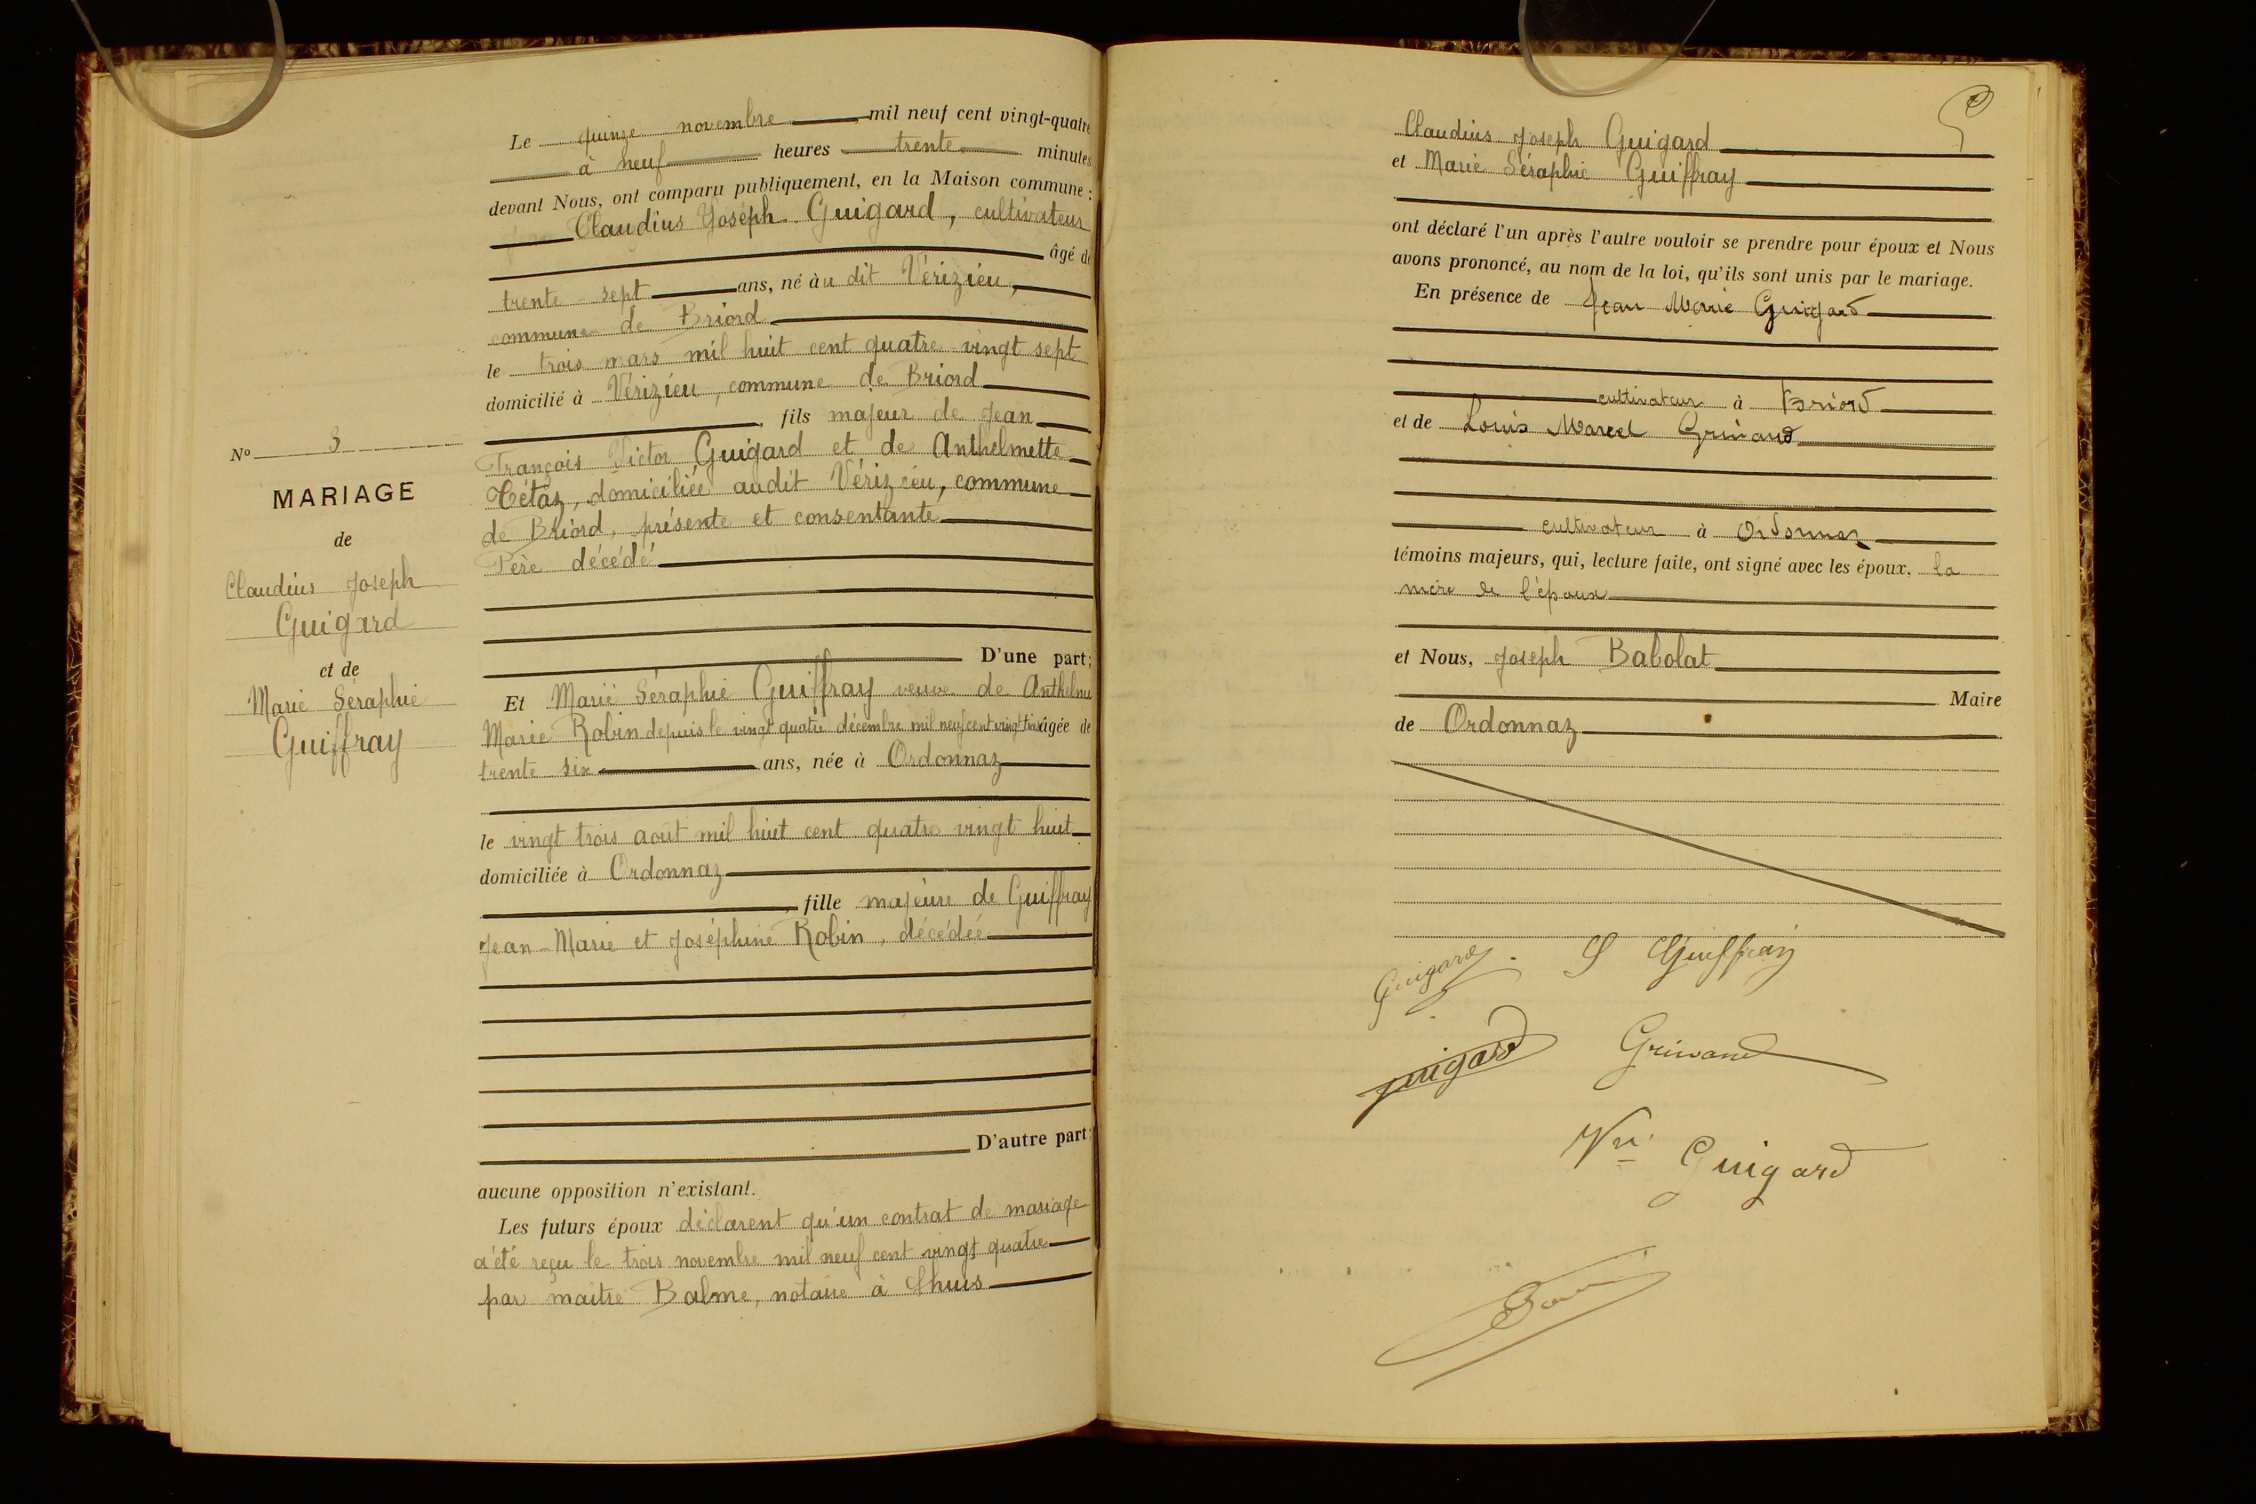 Le quinze novembre mil neuf cent vingt-quatre
à neuf heures trente minutes
devant Nous, ont comparu publiquement, en la Maison commune :
Claudius Joseph Guigard, cultivateur
âgé de
trente-sept ans, né àu dit Vérizieu,
commune de Briord
le trois mars mil huit cent quatre-vingt sept
domicilié à Vérizieu, commune de Briord
, fils majeur de Jean
François Victor Guigard et de Anthelmette
Tétaz, domiciliée audit Vérizieu, commune
de Briord, présente et consentante
Père décédé
D'une part;
Et Marie Séraphie Guiffray veuve de Anthelme
Marie Robin depuis le vingt quatre décembre mil neuf cent vingt trois âgée de
trente six ans, née à Ordonnaz
le vingt trois août mil huit cent quatre vingt huit
domiciliée à Ordonnaz
, fille majeure de Guiffray
Jean-Marie et Joséphine Robin, décédée
D'autre part;
aucune opposition n'existant.
Les futurs époux déclarent qu'un contrat de mariage
a été reçu le trois novembre mil neuf cent vingt quatre
par maître Balme, notaire à Lhuis
No 3
MARIAGE
de
Claudius Joseph
Guigard
et de
Marie Séraphie
Guiffray
Claudius Joseph Guigard
et Marie Séraphie Guiffray
ont déclaré l'un après l'autre vouloir se prendre pour époux et Nous
avons prononcé, au nom de la loi, qu'ils sont unis par le mariage.
En présence de Jean Marie Guigard
cultivateur à Briord
et de Louis Marcel Grinand
cultivateur à Ordonnaz
témoins majeurs, qui, lecture faite, ont signé avec les époux, la
mère de l'époux
et Nous, Joseph Babolat
Maire
de Ordonnaz
Guigard S Guiffray
Guigard Grinand
Vve Guigard